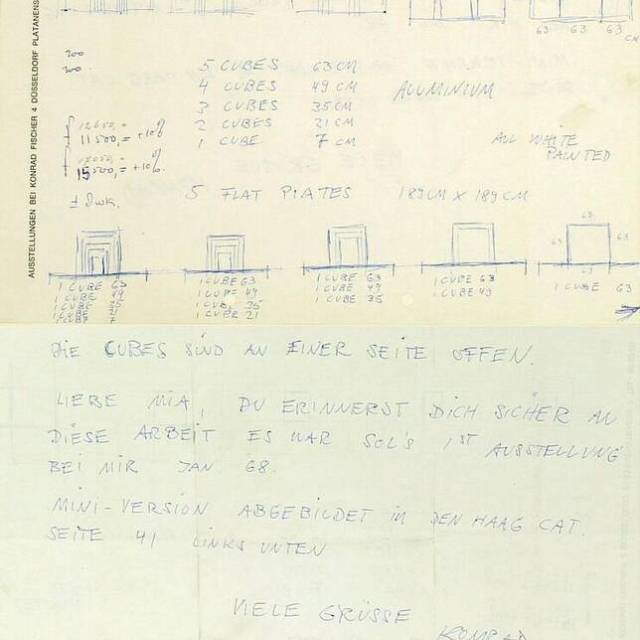 AUSSTELLUNGEN BEI KONRAD FISCHER 4 DÜSSELDORF PLATANENS
63 63 63
CM
5 CUBES 63 CM
4 CUBES 49 CM
3 CUBES 35 CM
2 CUBES 21 CM
1 CUBE 7 CM
ALUMINIUM
ALL WHITE
PAINTED
11500,= +10%
15500,= +10%
5 FLAT PLATES 189 CM X 189 CM
63
63 63
1 CUBE 63
1 CUBE 49
1 CUBE 63
1 CUBE 49
1 CUBE 35
1 CUBE 21
1 CUBE 63
1 CUBE 49
1 CUBE 35
1 CUBE 63
1 CUBE 49
1 CUBE 63
DIE CUBES SIND AN EINER SEITE OFFEN.
LIEBE MIA, DU ERINNERST DICH SICHER AN
DIESE ARBEIT ES WAR SOL'S 1ST AUSSTELLUNG
BEI MIR JAN 68.
MINI-VERSION ABGEBILDET IN DEN HAAG CAT.
SEITE 41 LINKS UNTEN
VIELE GRÜSSE
KONRAD